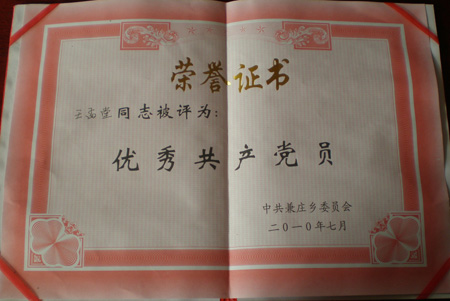 荣誉证书
王孟堂同志被评为:
优秀共产党员
中共兼庄乡委员会
二〇一〇年七月